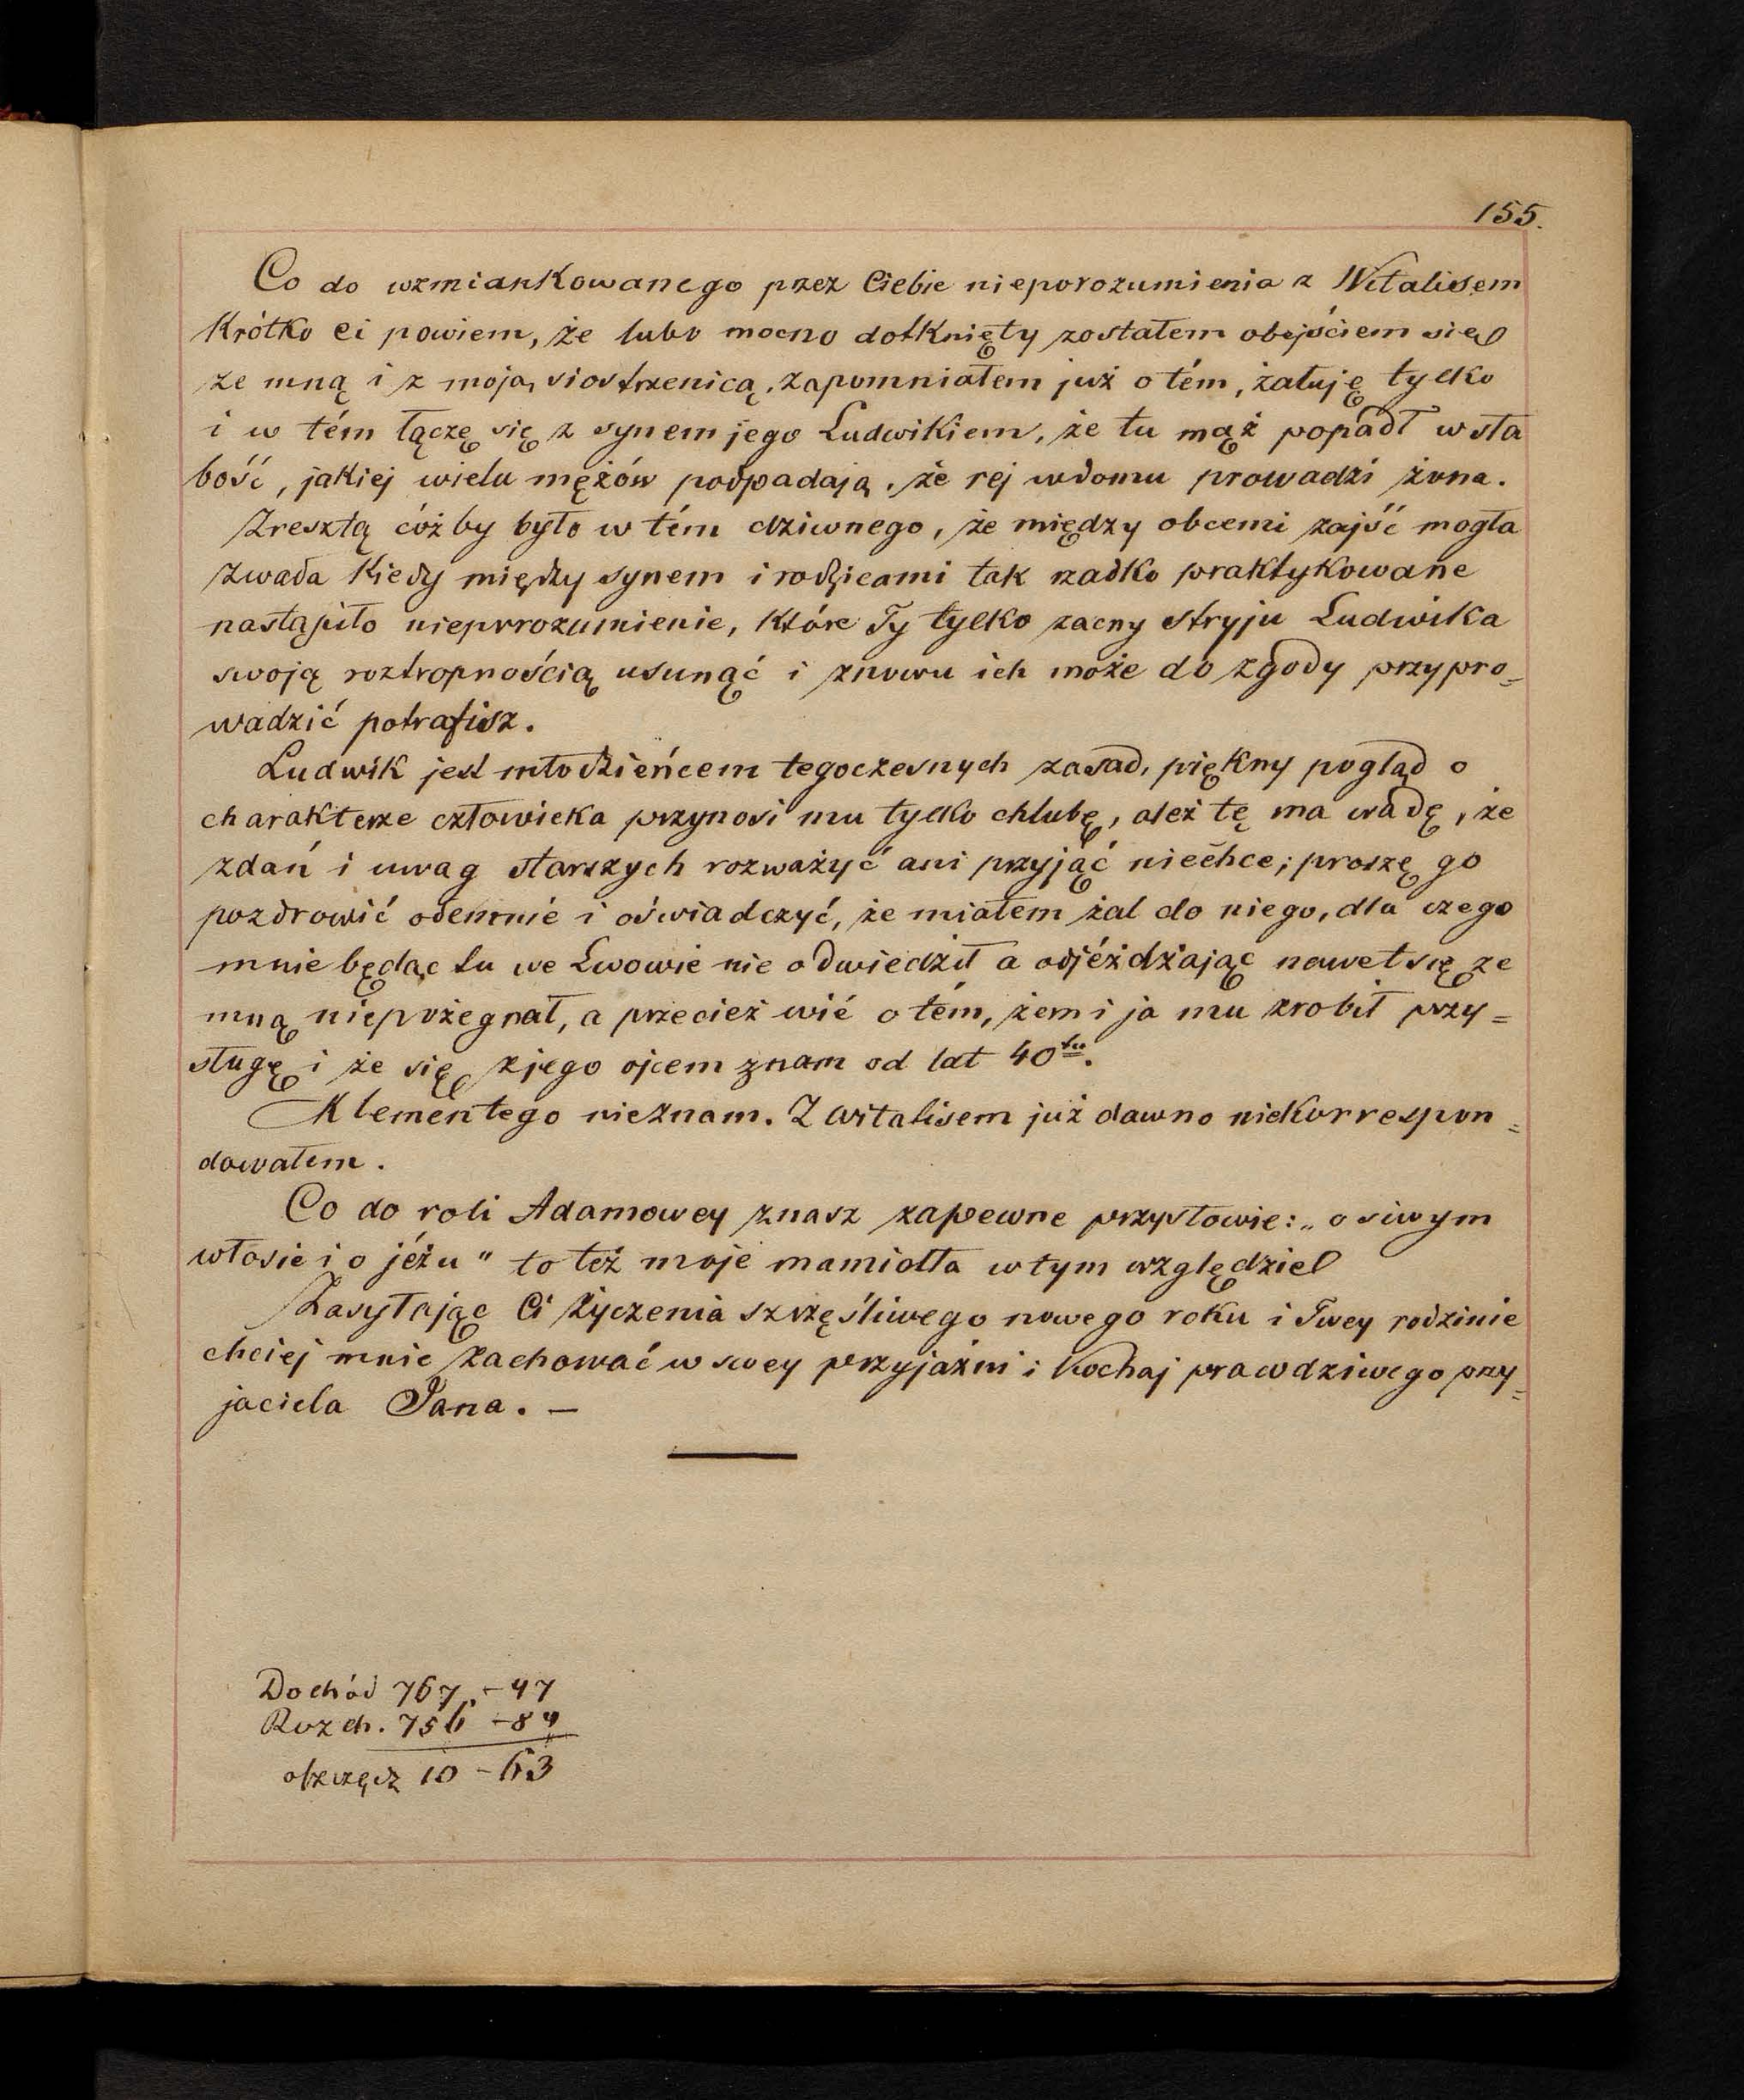 155.
Co do wzmiankowanego przez Ciebie nieporozumienia z Witalisem
Krótko ci powiem, że lubo mocno dotknięty zostałem obejściem się
ze mną i z moją siostrzenicą, zapomniałem już o tém, żałuję tylko
i w tém łączę się z synem jego Ludwikiem, że tu mąż popadł w sła
bość, jakiej wielu mężów podpadają, że rej w domu prowadzi żona.
Zresztą cóż by było w tém dziwnego, że między obcemi zajść mogła
zwada Kiedy między synem i rodzicami tak rzadko praktykowane
nastąpiło nieporozumienie, Które Ty tylko zacny Stryju Ludwika
swoją roztropnością usunąć i znowu ich może do zgody przypro=
wadzić potrafisz.
Ludwik jest młodzieńcem tegoczesnych zasad, piękny pogląd o
charakterze człowieka przynosi mu tylko chlubę, ależ tę ma wadę, że
zdań i uwag starszych rozważyć ani przyjąć niechce; proszę go
pozdrowić odemnie i oświadczyć, że miałem żal do niego, dla czego
mnie będąc tu we Lwowie nie odwiedził a odjéżdżając nawet się ze
mną niepożegnał, a przecież wié o tém, żem i ja mu zrobił przy=
sługę i że się z jego ojcem znam od lat 40tu.
Klementego nieznam. Z Witalisem już dawno niekorrespon=
dowałem.
Co do roli Adamowey znasz zapewne przysłowie: „o siwym
włosie i o jéżu" to też moje mamidła w tym względzie
Zasyłając Ci życzenia szczęśliwego nowego roku i Twey rodzinie
chciej mnie zachować w swey przyjaźni i Kochaj prawdziwego przy=
jaciela Jana. —
Dochód 767.-47
Rozch. 756 -84
10 - 63